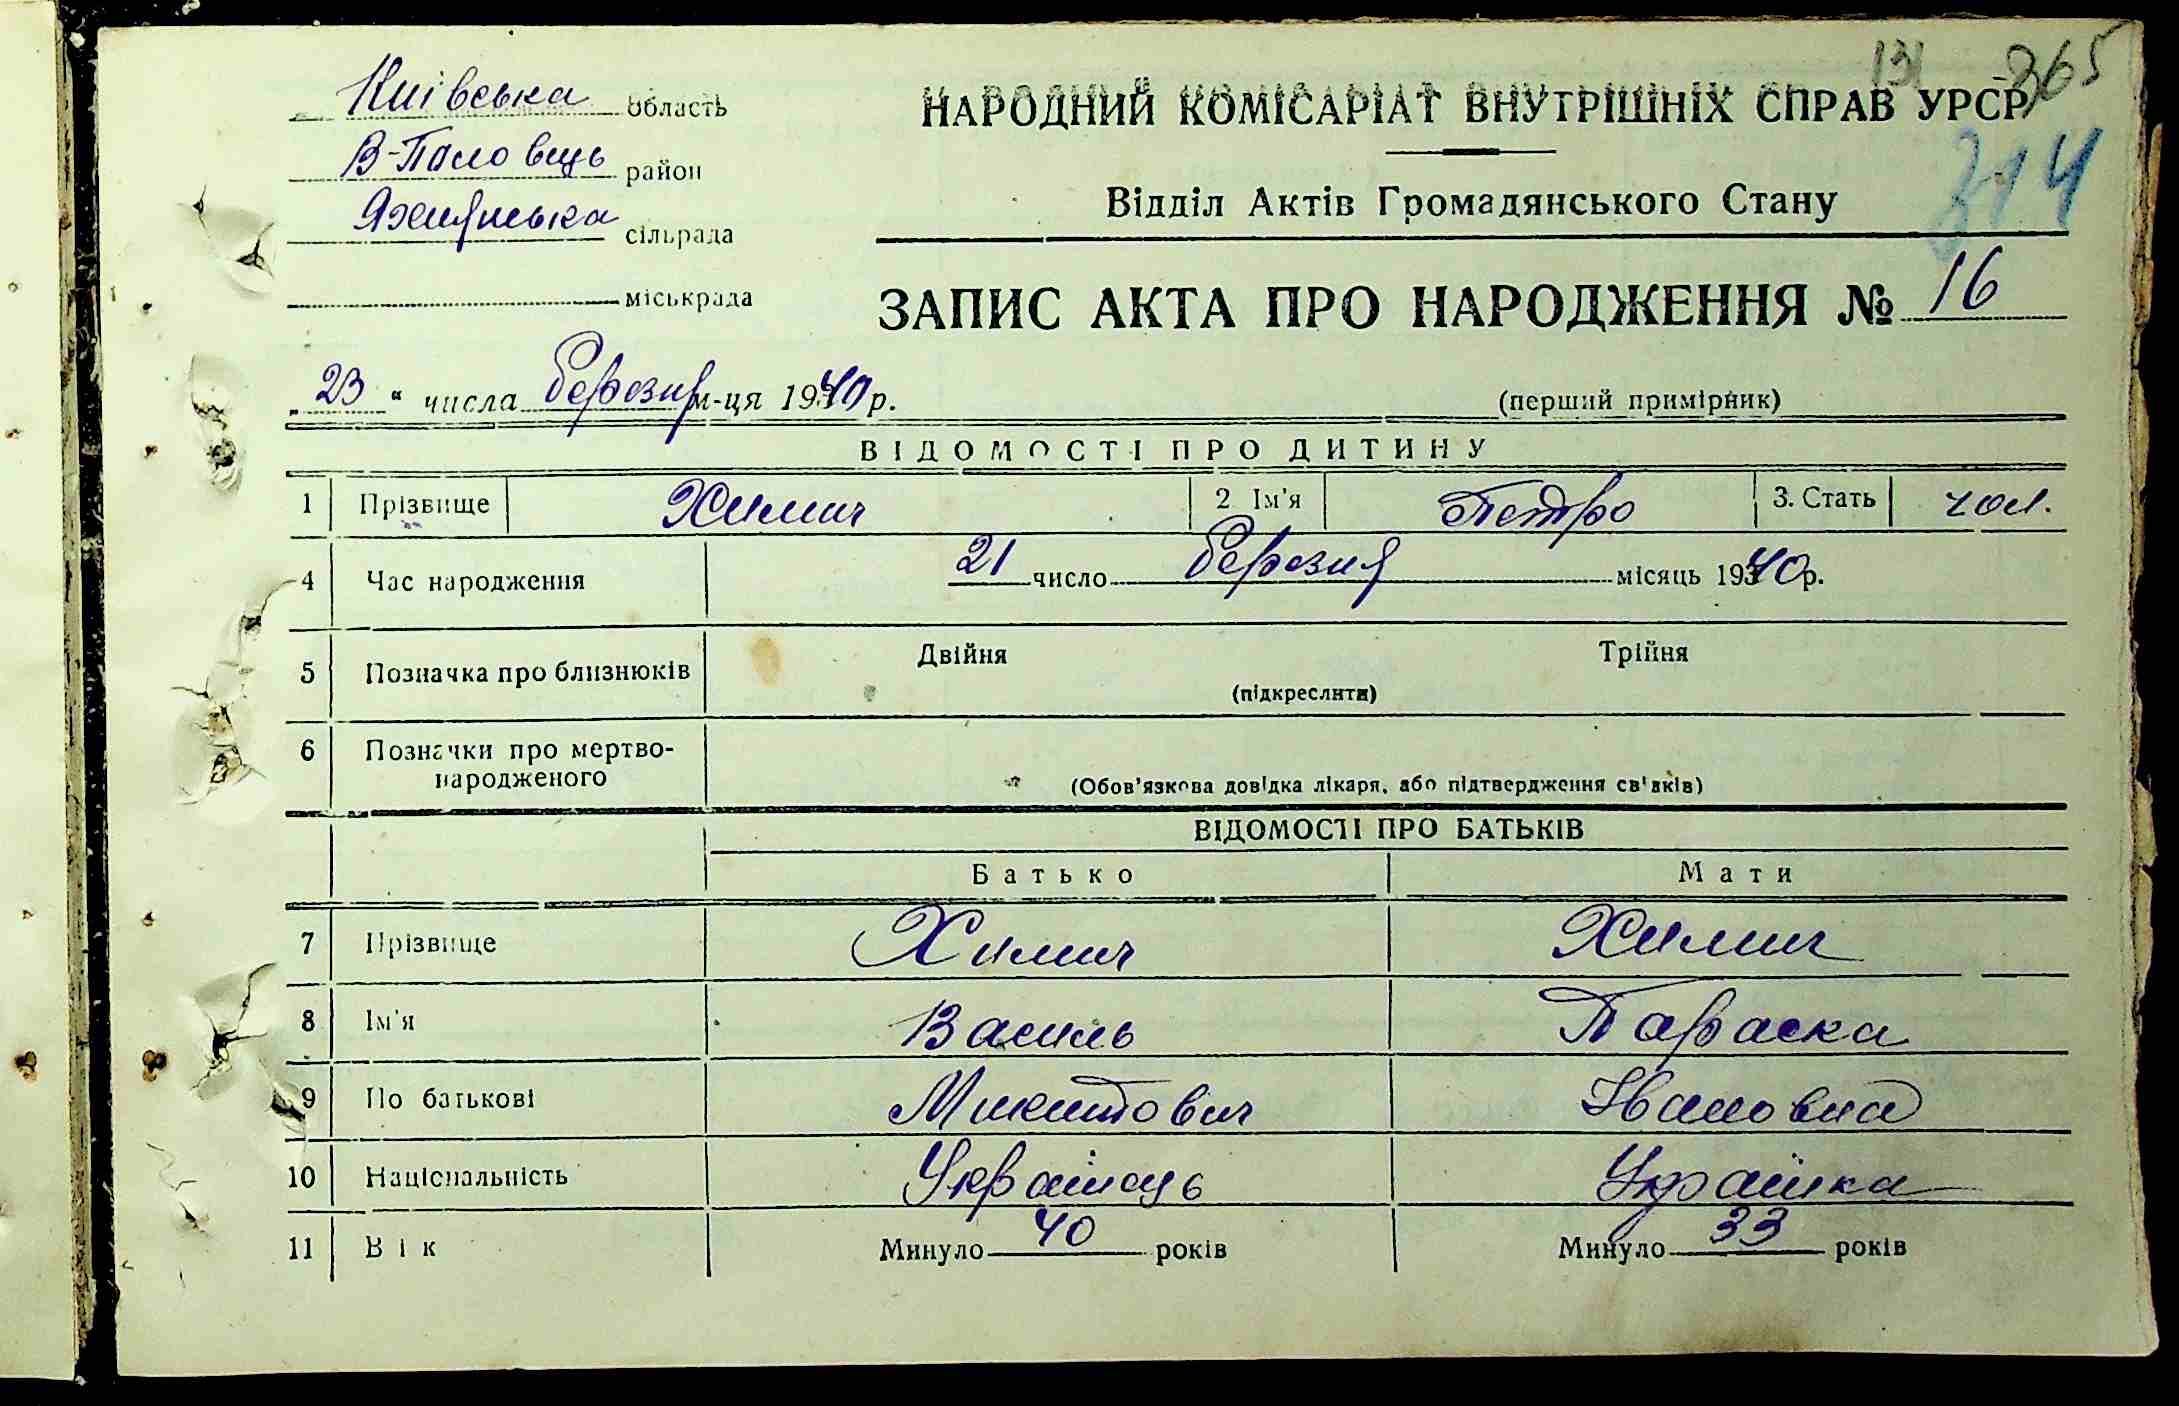 131 365
Київська область
НАРОДНИЙ КОМІСАРІАТ ВНУТРІШНІХ СПРАВ УРСР
В-Половець район
314
Відділ Актів Громадянського Стану
Яхнянська сільрада
міськрада
ЗАПИС АКТА ПРО НАРОДЖЕННЯ № 16
„23“ числа березня м-ця 1940 р.
(перший примірник)
ВІДОМОСТІ ПРО ДИТИНУ
1 Прізвище Химич 2 Ім'я Петро 3. Стать чол.
4 Час народження 21 число березня місяць 1940 р.
5 Позначка про близнюків Двійня Трійня
(підкреслити)
6 Позначки про мертво-
народженого
(Обов'язкова довідка лікаря, або підтвердження свідків)
ВІДОМОСТІ ПРО БАТЬКІВ
Батько Мати
7 Прізвище Химич Химич
8 Ім'я Василь Параска
9 По батькові Микитович Івановна
10 Національність Українець Українка
11 Вік Минуло 40 років Минуло 33 років